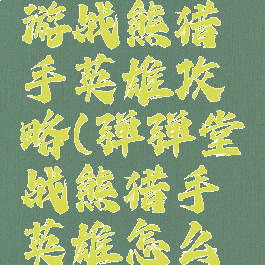 游战熊猎
手英雄攻
略(弹弹堂
战熊猎手
英雄怎么